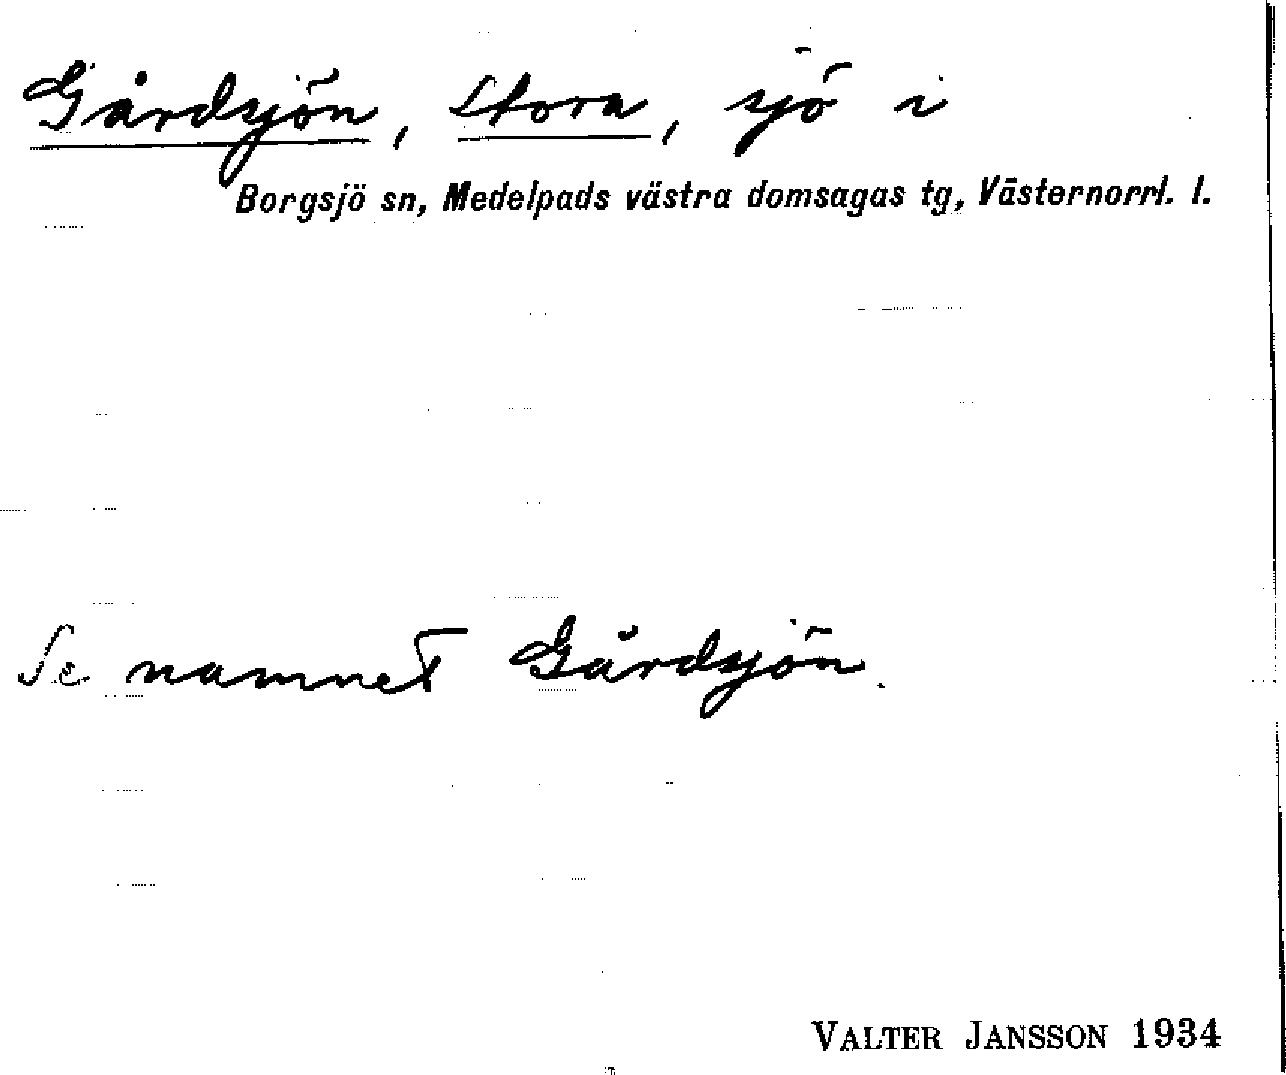 Gårdsjön, Stora, sjö i
Borgsjö sn, Medelpads västra domsagas tg, Västernorrl. l.
Se namnet Gårdsjön.
VALTER JANSSON 1934